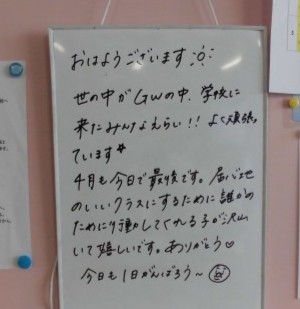 おはようございます
世の中がGWの中、学校に
来たみんなえらい!! よく頑張っ
ています☆
4月も今日で最後です。居心地
のいいクラスにするために誰かの
ために行動してくれる子が沢山
いて嬉しいです。ありがとう♡
今日も1日がんばろう〜